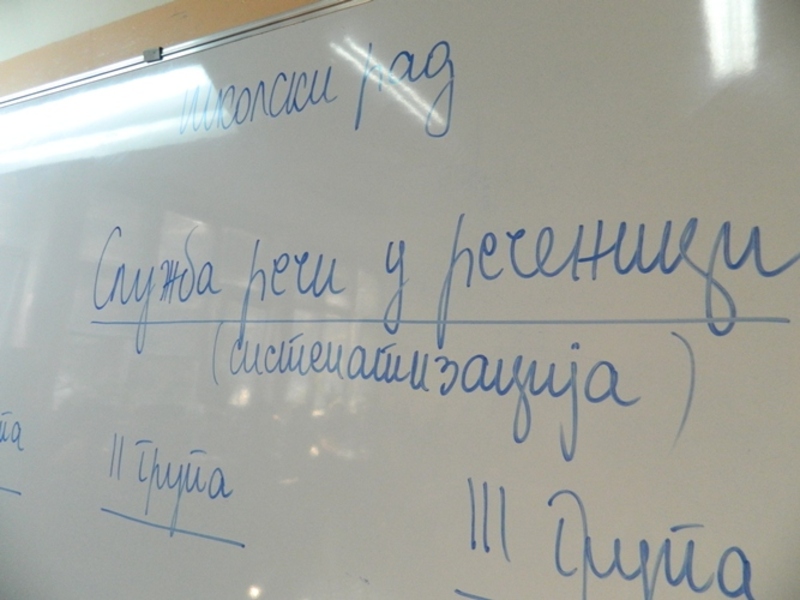 школски рад
Служба речи у реченици
(систематизација)
па
II група
III група